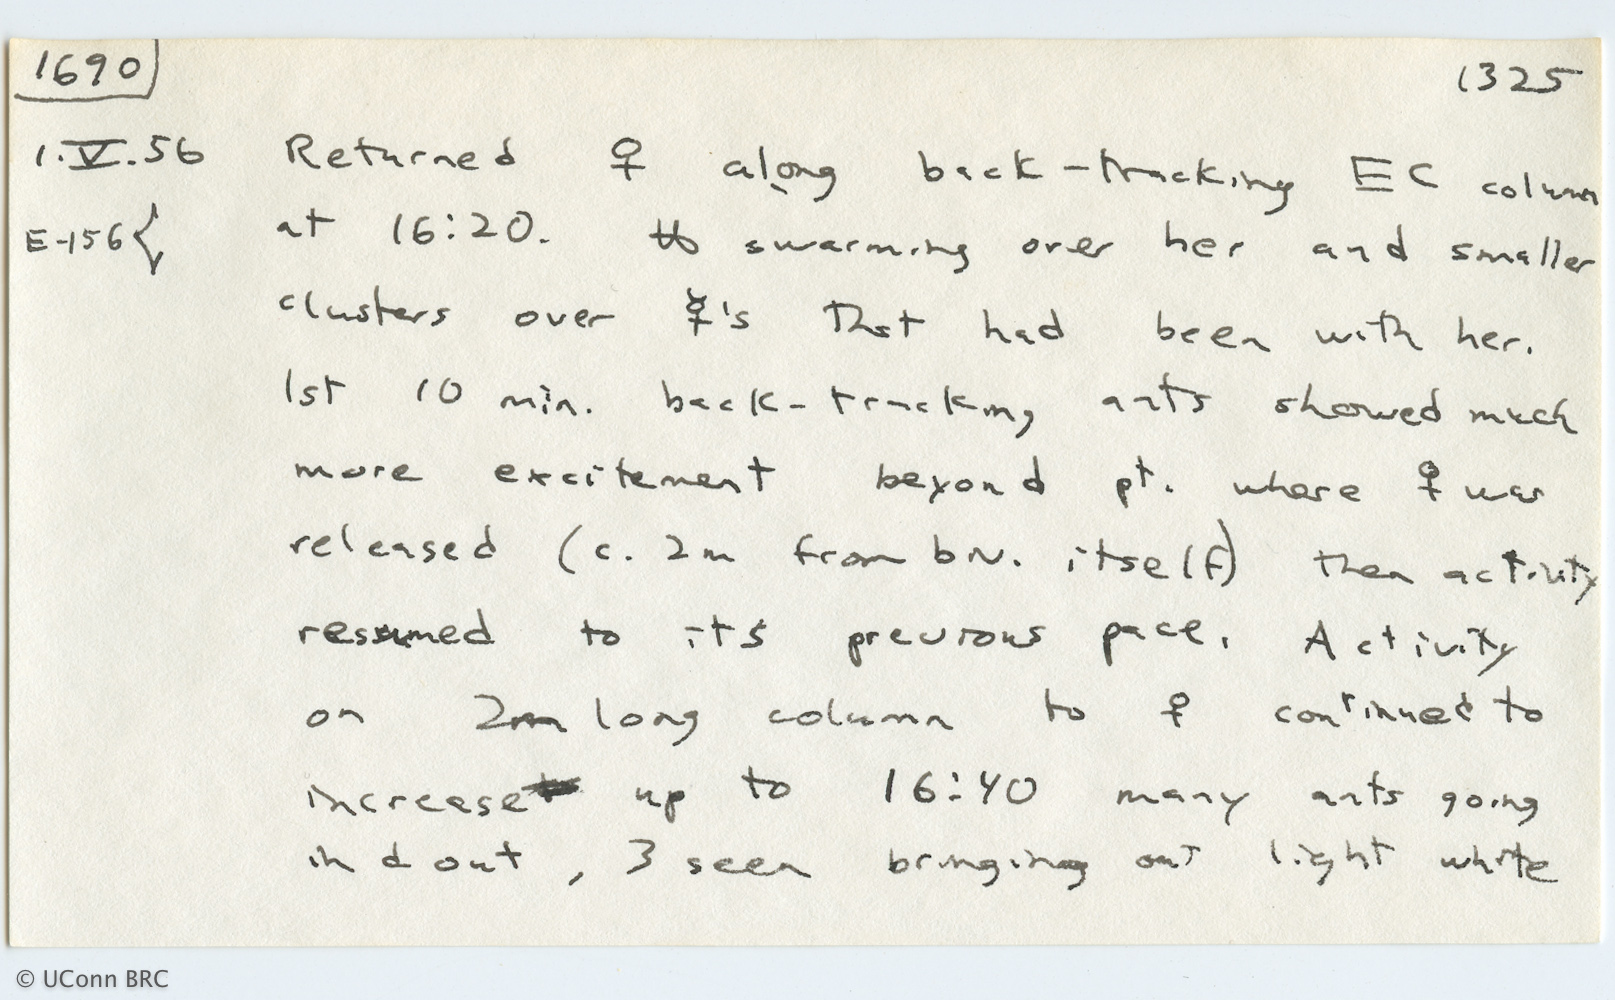 1690 1325
1.V.56 Returned ♀ along back-tracking EC column
E-156 at 16:20. swarming over her and smaller
clusters over ☿'s that had been with her.
1st 10 min. back-tracking ants showed much
more excitement beyond pt. where ♀ was
released (c. 2m from biv. itself) then activity
resumed to its previous pace. Activity
on 2m long column to ♀ continued to
increase up to 16:40 many ants going
in & out, 3 seen bringing out light white
© UConn BRC